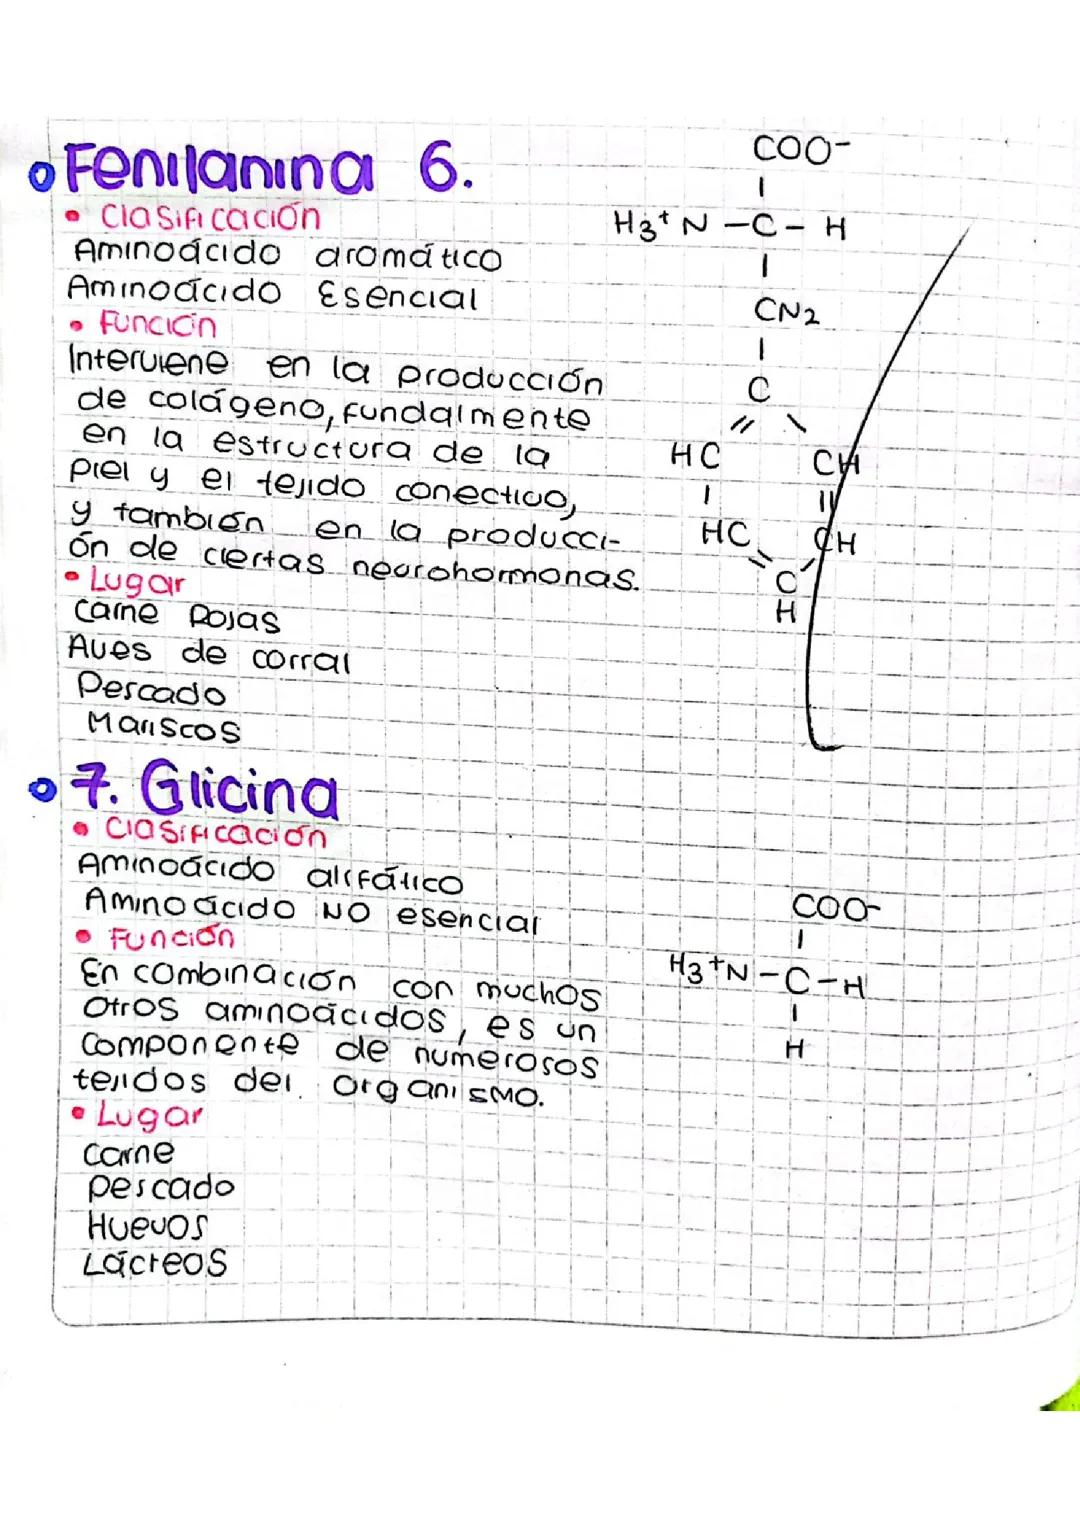 Fenilanina 6.
• Clasificación
Aminoácido aromático
Aminoácido Esencial
• Función
Interviene en la producción
de colágeno, fundalmente
en la estructura de la
piel y el tejido conectivo,
y también en la producci-
ón de ciertas neurohormonas.
• Lugar
Carne Rojas
Aves de corral
Pescado
Mariscos
COO-
H3+N-C-H
CN2
C
HC CH
HC CH
C
H
7. Glicina
• Clasificación
Aminoácido alifático
Aminoácido NO esencial
• Función
En combinación con muchos
otros aminoácidos, es un
componente de numerosos
tejidos del organismo.
• Lugar
carne
pescado
Huevos
Lácteos
COO-
H3+N-C-H
H